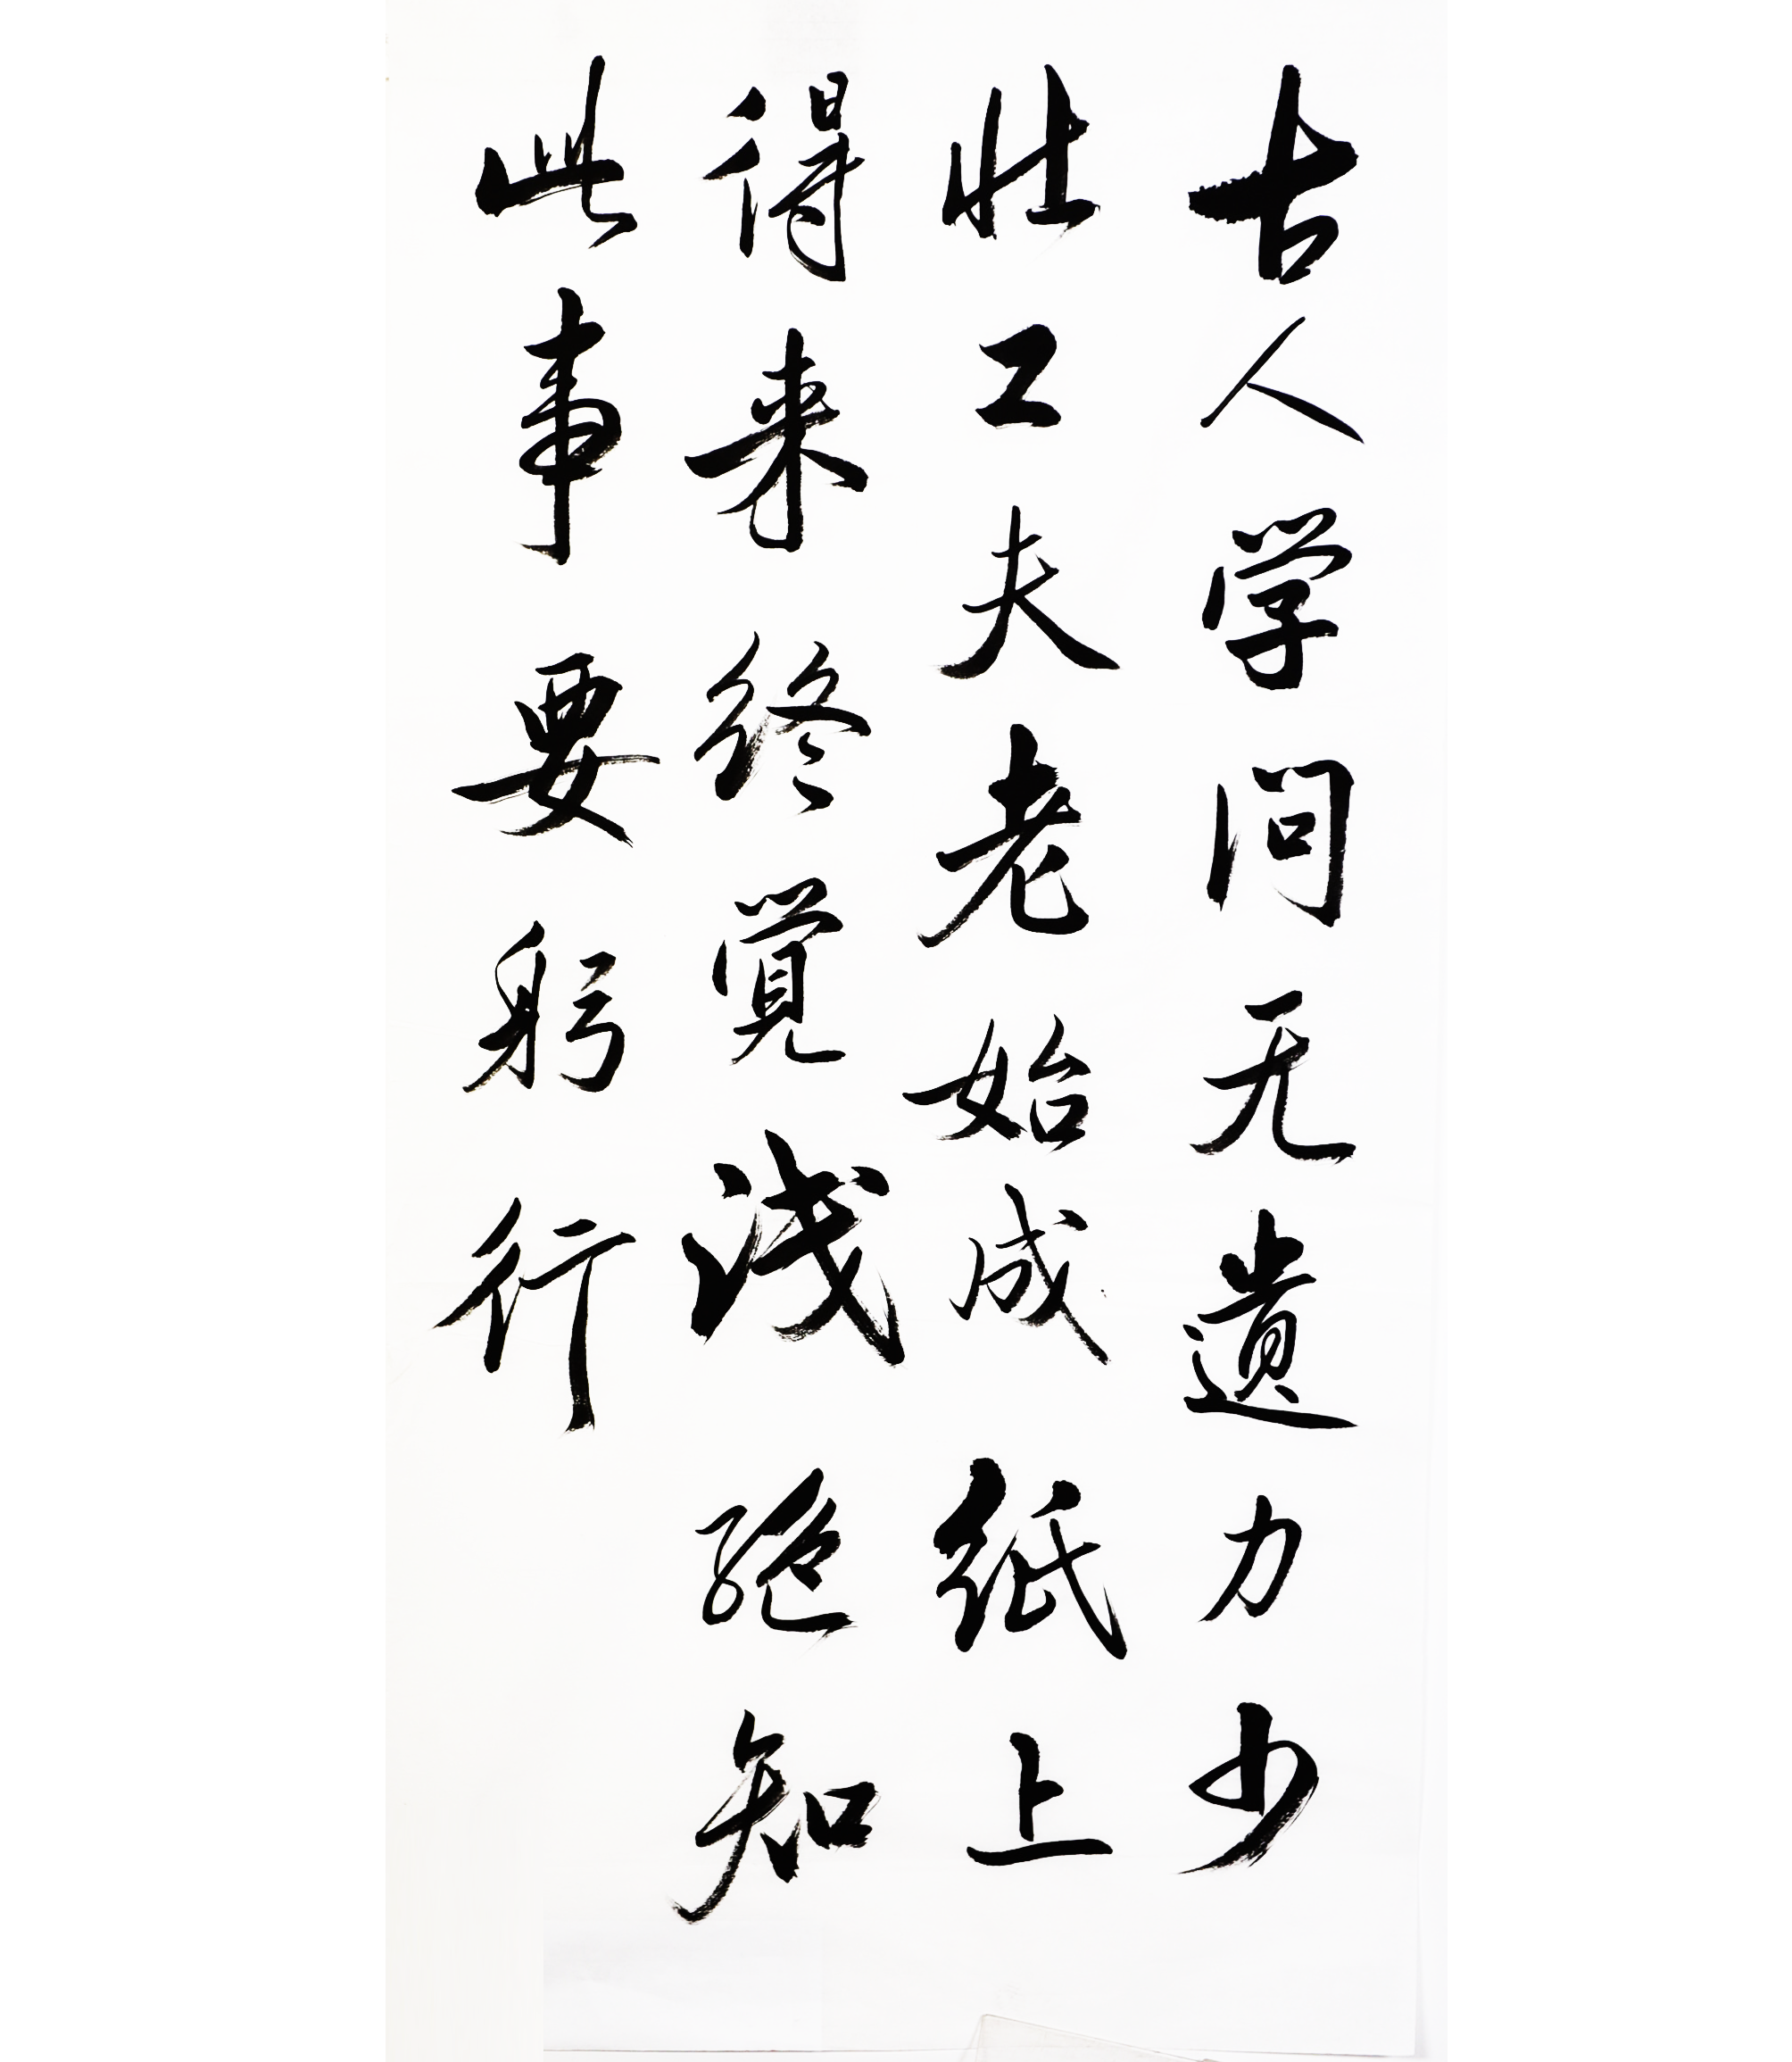 古人学问无遗力少
壮工夫老始成纸上
得来终觉浅绝知
此事要躬行